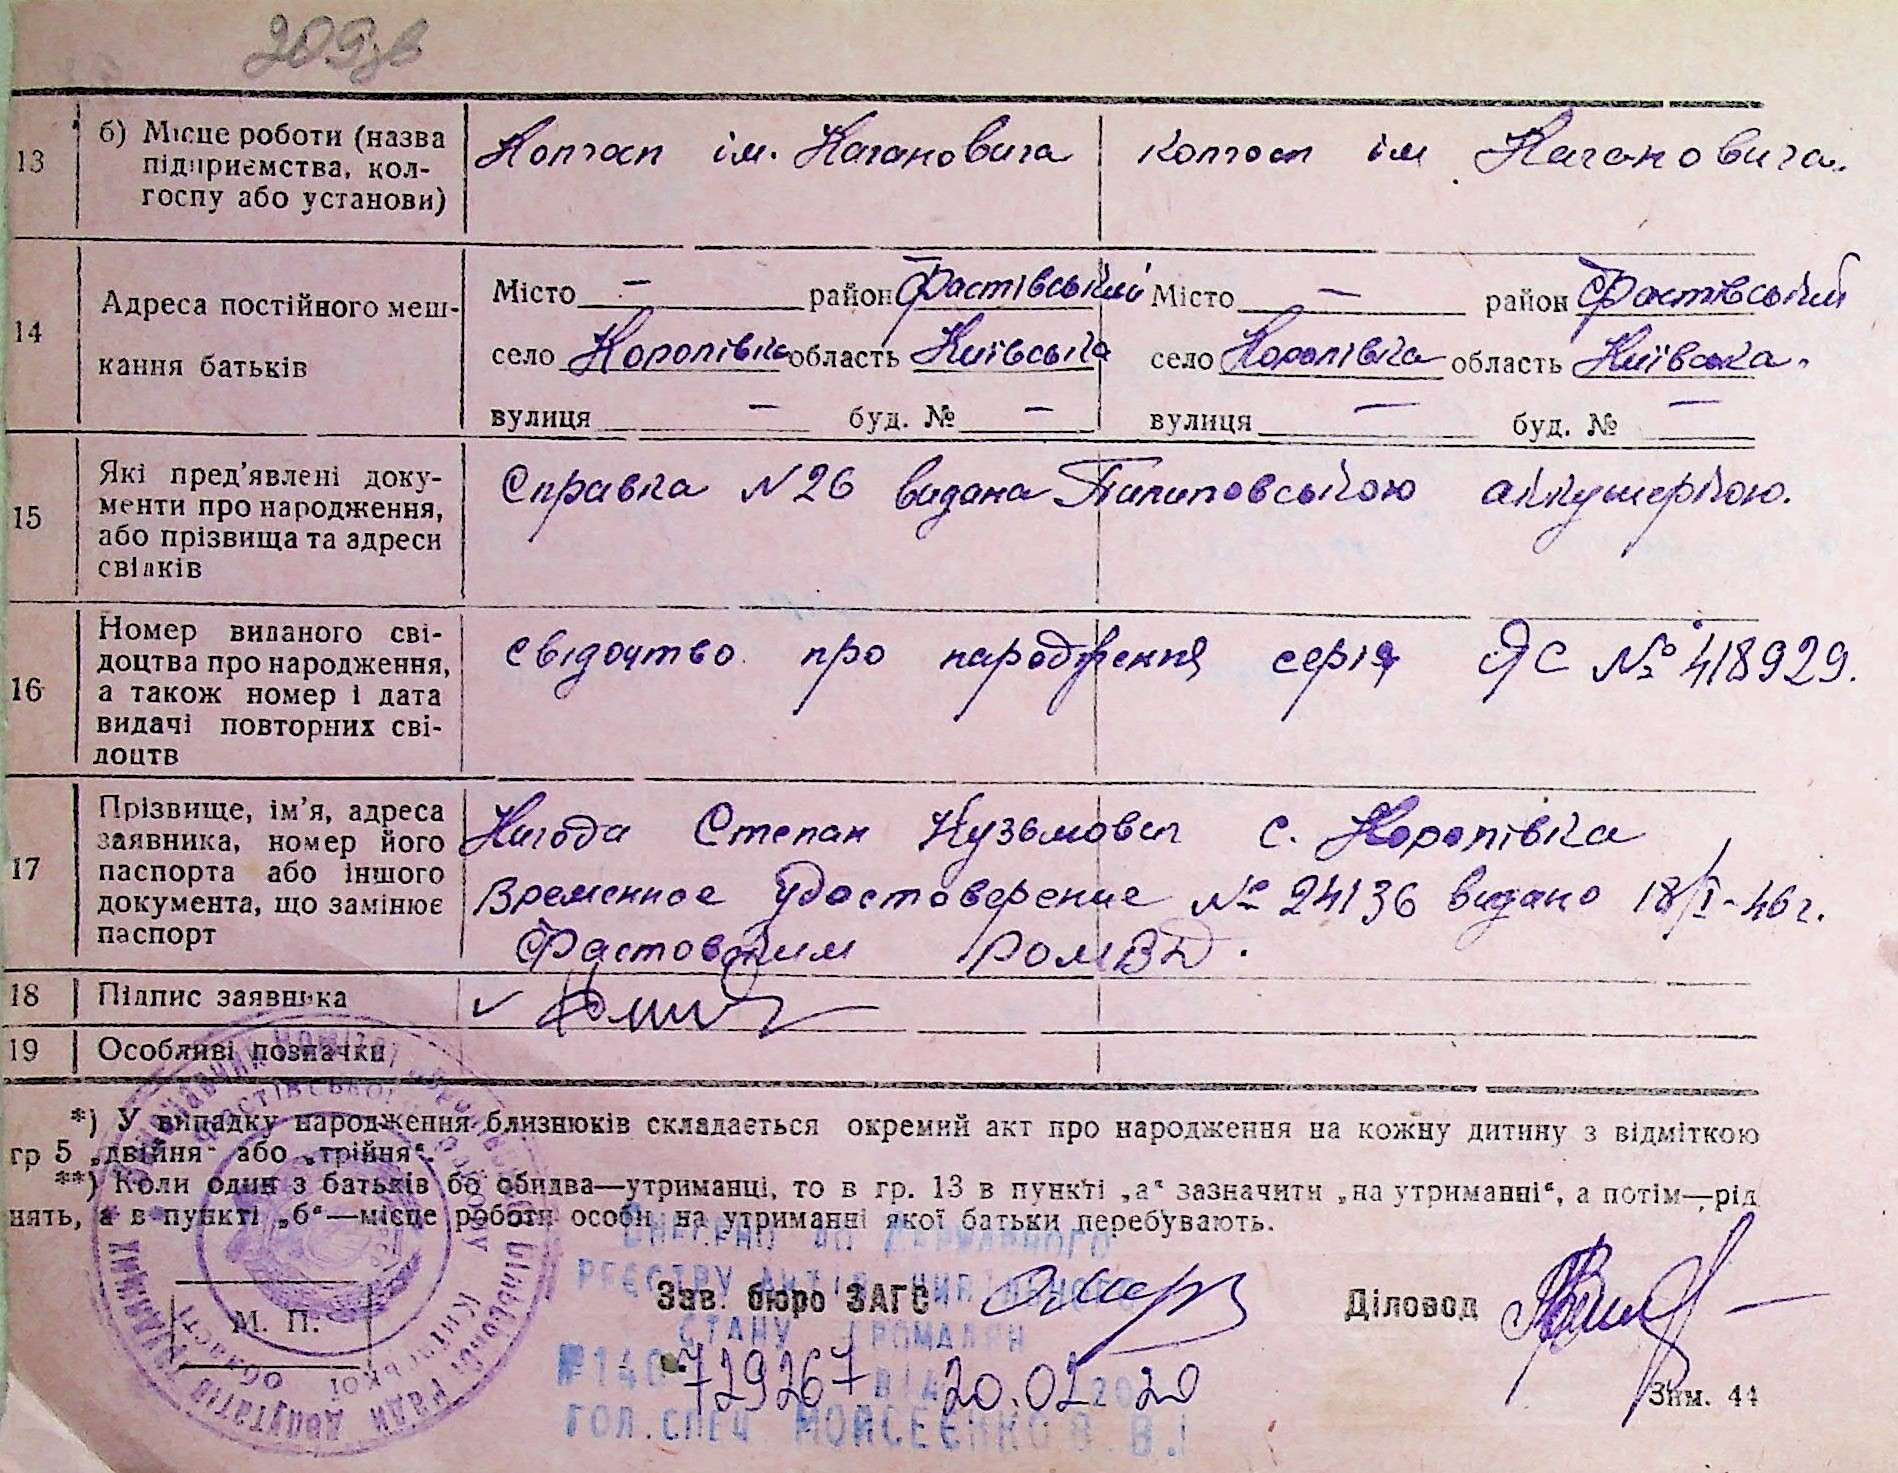 209зв
13 б) Місце роботи (назва підприємства, колгоспу або установи)
Колгосп ім. Кагановича
колгосп ім Кагановича.
14 Адреса постійного мешкання батьків
Місто — район Фастівський
село Королівка область Київська
вулиця — буд. № —
Місто — район Фастівський
село Королівка область Київська.
вулиця — буд. № —
15 Які пред'явлені документи про народження, або прізвища та адреси свідків
Справка N 26 видана Пилиповською аккушеркою.
16 Номер виданого свідоцтва про народження, а також номер і дата видачі повторних свідоцтв
свідоцтво про народження серія ЯС № 418929.
17 Прізвище, ім'я, адреса заявника, номер його паспорта або іншого документа, що замінює паспорт
Степан Кузьмович с. Королівка
Временное удостоверение № 24136 видано 18/I-46 г.
Фастовским РОМВД.
18 Підпис заявника
19 Особливі позначки
*) У випадку народження близнюків складається окремий акт про народження на кожну дитину з відміткою
гр 5 „двійня“ або „трійня“.
**) Коли один з батьків бо обидва—утриманці, то в гр. 13 в пункті „а“ зазначити „на утриманні“, а потім—рід
нять, а в пункті „б“—місце роботи особи, на утриманні якої батьки перебувають.
М. П.
Зав. бюро ЗАГС
Діловод
ВНЕСЕНО ДО ДЕРЖАВНОГО
РЕЄСТРУ АКТІВ ЦИВІЛЬНОГО
СТАНУ ГРОМАДЯН
№140 729267 ВІД 20.02 2020
ГОЛ.СПЕЦ МОЙСЕЄНКО В.
Зам. 44